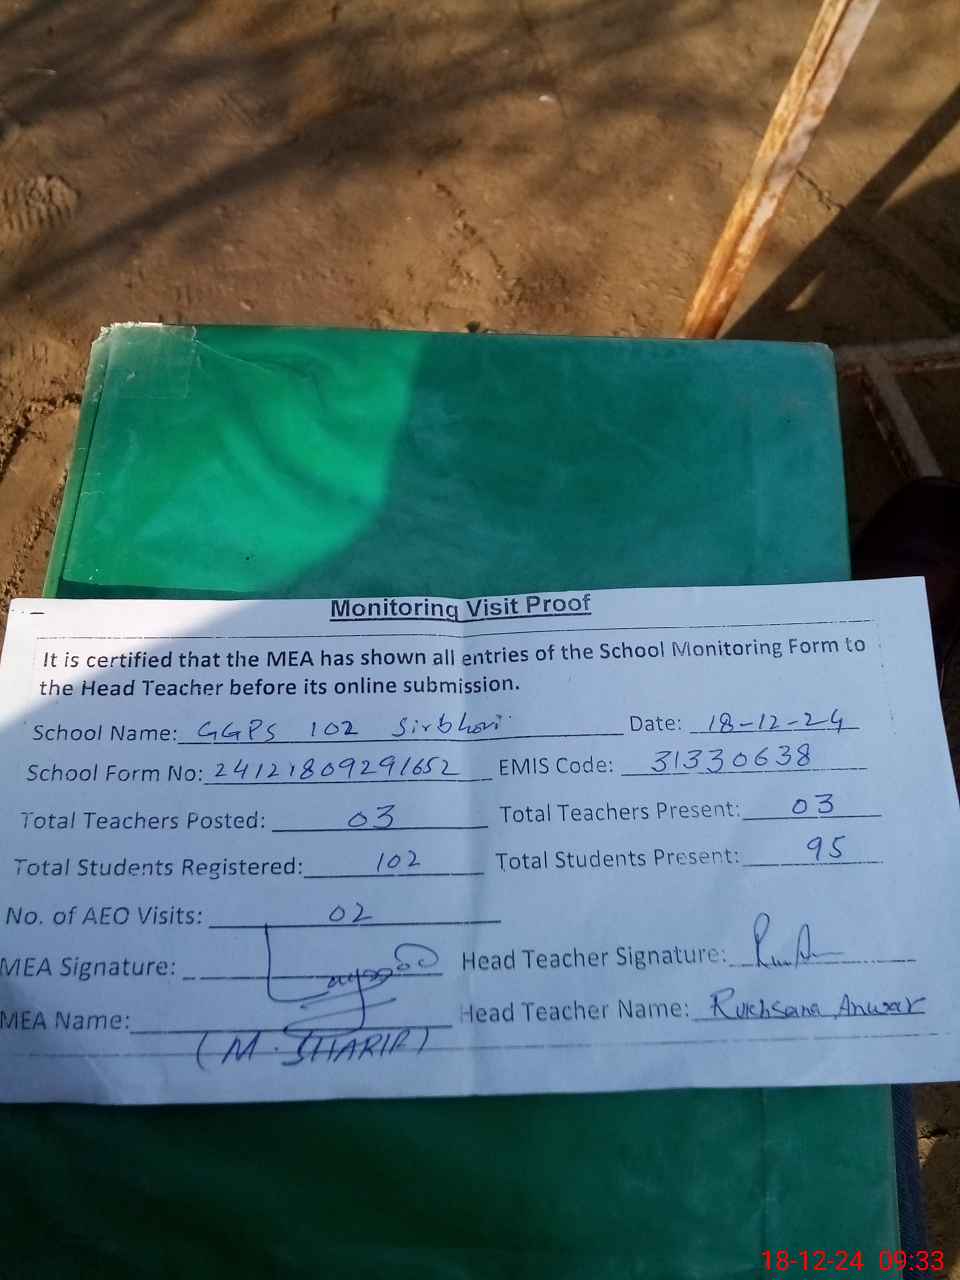 Monitoring Visit Proof
It is certified that the MEA has shown all entries of the School Monitoring Form to
the Head Teacher before its online submission.
School Name: GGPS 102 Sirbhori Date: 18-12-24
School Form No: 24121809291652 EMIS Code: 31330638
Total Teachers Posted: 03 Total Teachers Present: 03
Total Students Registered: 102 Total Students Present: 95
No. of AEO Visits: 02
MEA Signature: Head Teacher Signature:
MEA Name: Head Teacher Name: Rukhsana Anwar
(M. SHARIF)
18-12-24 09:33